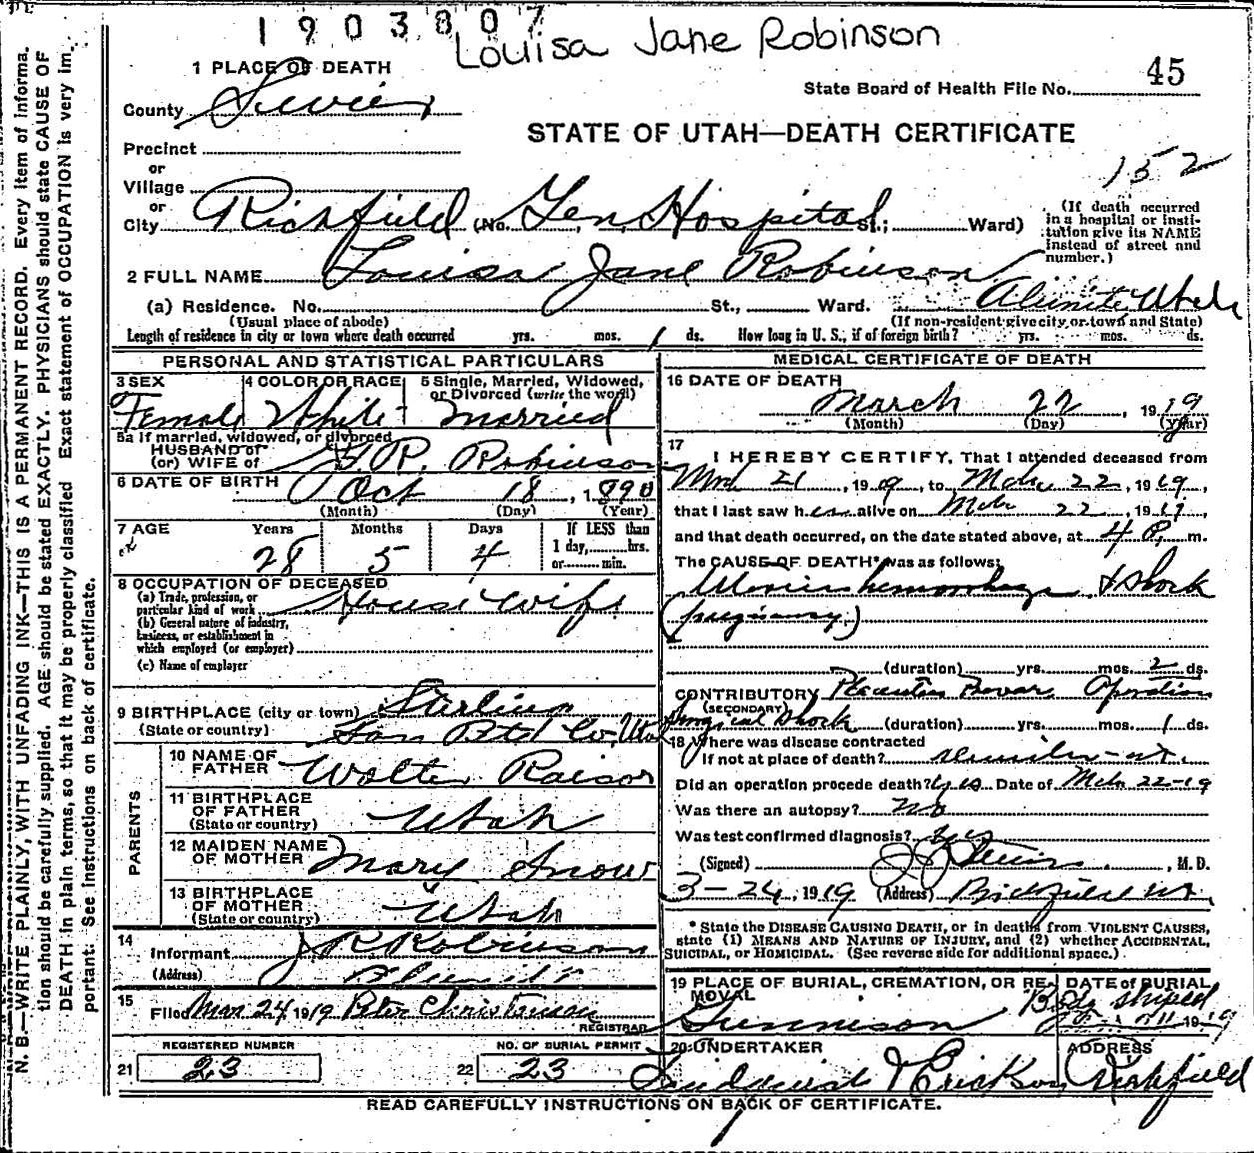 1903807
Louisa Jane Robinson
45
1 PLACE OF DEATH
State Board of Health File No.
County Sevier
STATE OF UTAH—DEATH CERTIFICATE
Precinct
or
Village
152
or
City Richfield (No. Gen. Hospital St.; Ward)
(If death occurred in a hospital or institution give its NAME instead of street and number.)
2 FULL NAME Louisa Jane Robinson
(a) Residence. No. St., Ward. Alunite Utah
(Usual place of abode) (If non-resident give city or town and State)
Length of residence in city or town where death occurred yrs. mos. 1 ds. How long in U. S., if of foreign birth? yrs. mos. ds.
PERSONAL AND STATISTICAL PARTICULARS
3 SEX Female
4 COLOR OR RACE White
5 Single, Married, Widowed, or Divorced (write the word) Married
5a If married, widowed, or divorced
HUSBAND of
(or) WIFE of R. Robinson
6 DATE OF BIRTH Oct 18, 1890
(Month) (Day) (Year)
7 AGE Years Months Days If LESS than
28 5 4 1 day,......hrs.
or......min.
8 OCCUPATION OF DECEASED
(a) Trade, profession, or particular kind of work House wife
(b) General nature of industry, business, or establishment in which employed (or employer)
(c) Name of employer
9 BIRTHPLACE (city or town) Sterling
(State or country) San Pete Co, Utah
PARENTS
10 NAME OF FATHER Walter Raisor
11 BIRTHPLACE OF FATHER (State or country) Utah
12 MAIDEN NAME OF MOTHER Mary Snow
13 BIRTHPLACE OF MOTHER (State or country) Utah
14 Informant R Robinson
(Address)
15 Filed Mar 24 1919 Peter Christensen
REGISTRAR
REGISTERED NUMBER NO. OF BURIAL PERMIT
21 23 22 23
MEDICAL CERTIFICATE OF DEATH
16 DATE OF DEATH
March 22, 1919
(Month) (Day) (Year)
17 I HEREBY CERTIFY, That I attended deceased from
Mch 21, 1919, to Mch 22, 1919,
that I last saw her alive on Mch 22, 1919,
and that death occurred, on the date stated above, at 4 P. m.
The CAUSE OF DEATH* was as follows:
Uterine hemorrhage & shock
(pregnancy)
(duration) yrs. mos. 2 ds.
CONTRIBUTORY Placenta Previa Operation
(SECONDARY) Surgical Shock (duration) yrs. mos. 1 ds.
18 Where was disease contracted
If not at place of death? Alunite - Ut.
Did an operation procede death? Yes Date of Mch 22-19
Was there an autopsy? No
Was test confirmed diagnosis? Yes
(Signed) , M. D.
3-24, 1919 (Address) Richfield Ut.
* State the DISEASE CAUSING DEATH, or in deaths from VIOLENT CAUSES, state (1) MEANS AND NATURE OF INJURY, and (2) whether ACCIDENTAL, SUICIDAL, or HOMICIDAL. (See reverse side for additional space.)
19 PLACE OF BURIAL, CREMATION, OR REMOVAL DATE of BURIAL
Gunnison Body shiped
1919
20 UNDERTAKER ADDRESS
& Erickson Richfield
READ CAREFULLY INSTRUCTIONS ON BACK OF CERTIFICATE.
N. B.—WRITE PLAINLY, WITH UNFADING INK—THIS IS A PERMANENT RECORD. Every item of informa.
tion should be carefully supplied. AGE should be stated EXACTLY. PHYSICIANS should state CAUSE OF
DEATH in plain terms, so that it may be properly classified. Exact statement of OCCUPATION is very im.
portant. See instructions on back of certificate.